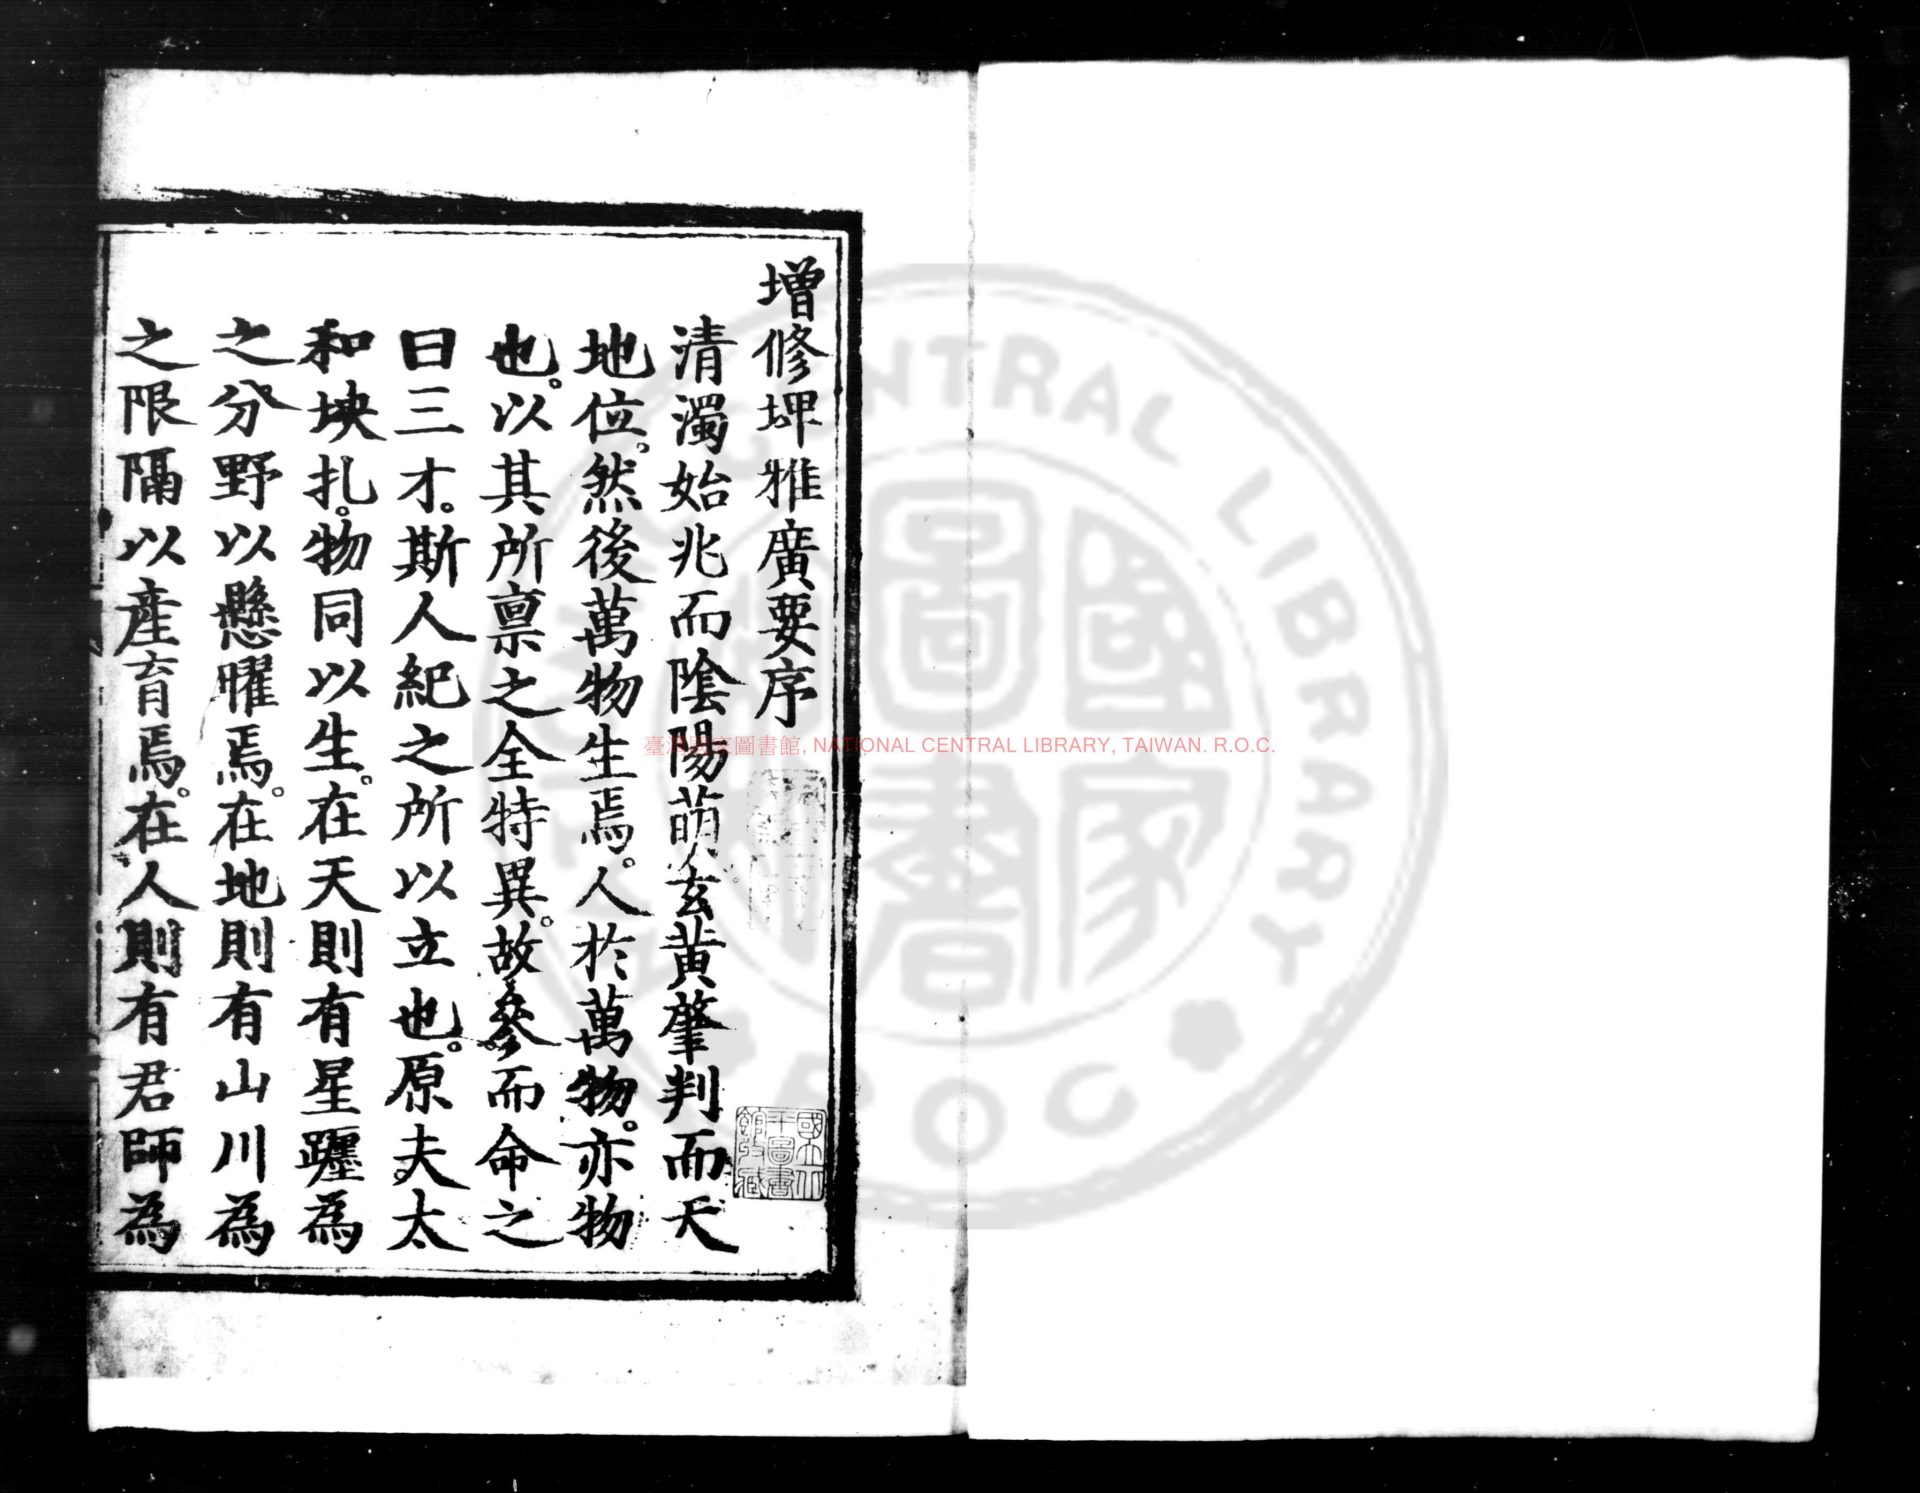 增修埤雅廣要序
清濁始兆而陰陽萌玄黃肇判而天
地位。然後萬物生焉。人於萬物。亦物
也。以其所禀之全特異。故參而命之
曰三才。斯人紀之所以立也。原夫太
和坱扎。物同以生。在天則有星躔為
之分野以懸曜焉。在地則有山川為
之限隔以產育焉。在人則有君師為
國立北
平圖書
館收藏
臺灣國家圖書館, NATIONAL CENTRAL LIBRARY, TAIWAN. R.O.C.
NATIONAL CENTRAL LIBRARY
R.O.C
國家圖書